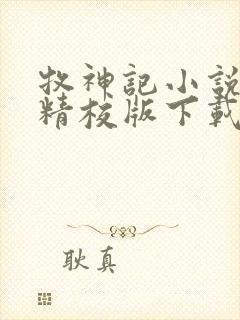 牧神記小說
精校版下載
耿真